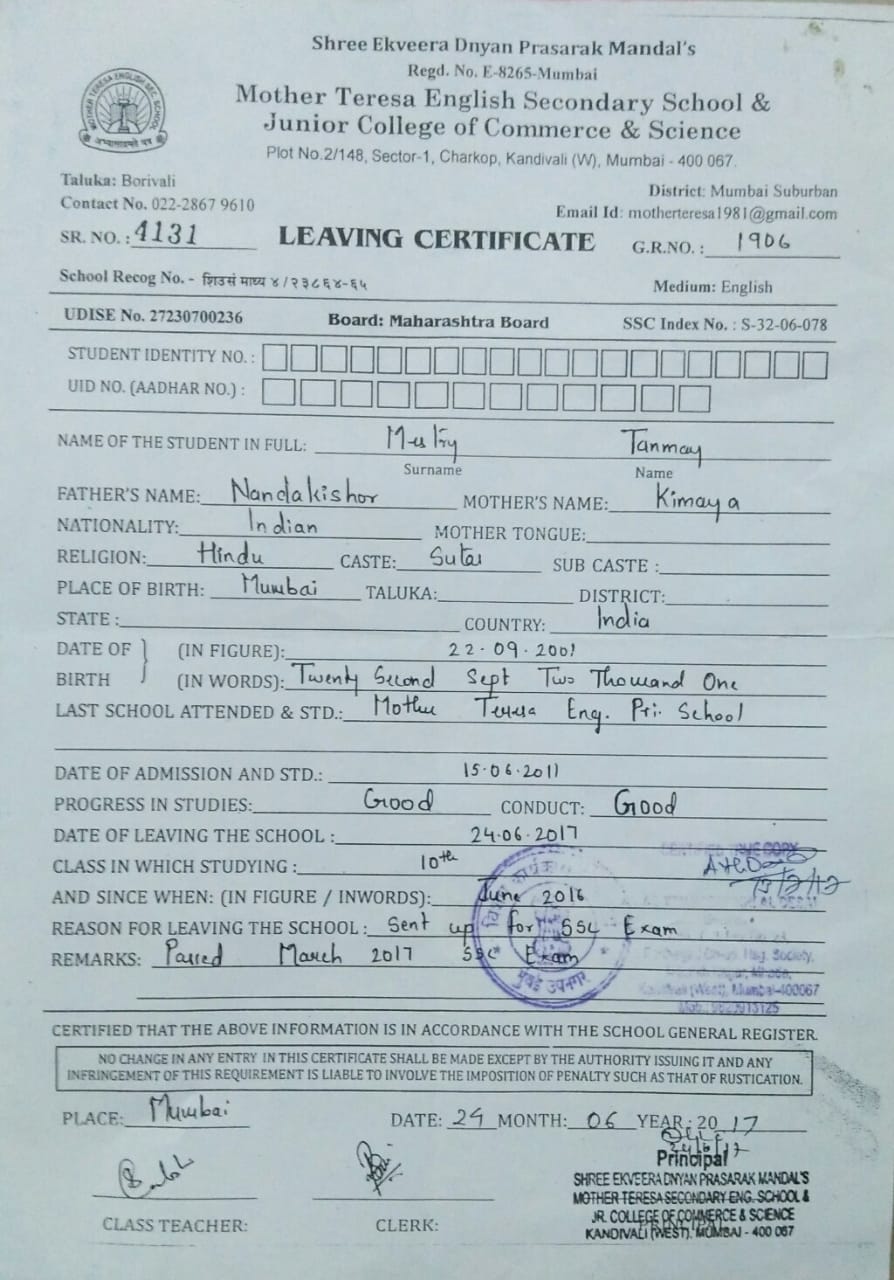 Shree Ekveera Dnyan Prasarak Mandal's
Regd. No. E-8265-Mumbai
Mother Teresa English Secondary School &
Junior College of Commerce & Science
Plot No.2/148, Sector-1, Charkop, Kandivali (W), Mumbai - 400 067.
MOTHER TERESA ENGLISH SEC. SCHOOL
Taluka: Borivali
District: Mumbai Suburban
Contact No. 022-2867 9610
Email Id: motherteresa1981@gmail.com
SR. NO. : 4131 LEAVING CERTIFICATE G.R.NO. : 1906
School Recog No. - शिउसं माध्य ४/२३८६४-६५ Medium: English
UDISE No. 27230700236 Board: Maharashtra Board SSC Index No. : S-32-06-078
STUDENT IDENTITY NO. :
UID NO. (AADHAR NO.) :
NAME OF THE STUDENT IN FULL: Mestry Tanmay
Surname Name
FATHER'S NAME: Nandakishor MOTHER'S NAME: Kimaya
NATIONALITY: Indian MOTHER TONGUE:
RELIGION: Hindu CASTE: Sutar SUB CASTE :
PLACE OF BIRTH: Mumbai TALUKA: DISTRICT:
STATE : COUNTRY: India
DATE OF (IN FIGURE): 22-09-2001
BIRTH (IN WORDS): Twenty Second Sept Two Thousand One
LAST SCHOOL ATTENDED & STD.: Mother Teresa Eng. Pri. School
DATE OF ADMISSION AND STD.: 15-06-2011
PROGRESS IN STUDIES: Good CONDUCT: Good
DATE OF LEAVING THE SCHOOL : 24-06-2017
CLASS IN WHICH STUDYING : 10th
CERTIFIED TRUE COPY
AND SINCE WHEN: (IN FIGURE / INWORDS): June 2016
REASON FOR LEAVING THE SCHOOL : Sent up for SSC Exam
REMARKS: Passed March 2017 SSC Exam
Hsg. Society,
Kandivali (West), Mumbai-400067
मुंबई उपनगर
CERTIFIED THAT THE ABOVE INFORMATION IS IN ACCORDANCE WITH THE SCHOOL GENERAL REGISTER.
NO CHANGE IN ANY ENTRY IN THIS CERTIFICATE SHALL BE MADE EXCEPT BY THE AUTHORITY ISSUING IT AND ANY
INFRINGEMENT OF THIS REQUIREMENT IS LIABLE TO INVOLVE THE IMPOSITION OF PENALTY SUCH AS THAT OF RUSTICATION.
PLACE: Mumbai DATE: 24 MONTH: 06 YEAR: 2017
24/6/17
Principal
SHREE EKVEERA DNYAN PRASARAK MANDAL'S
MOTHER TERESA SECONDARY ENG. SCHOOL &
JR. COLLEGE OF COMMERCE & SCIENCE
KANDIVALI (WEST). MUMBAI - 400 067
CLASS TEACHER: CLERK: